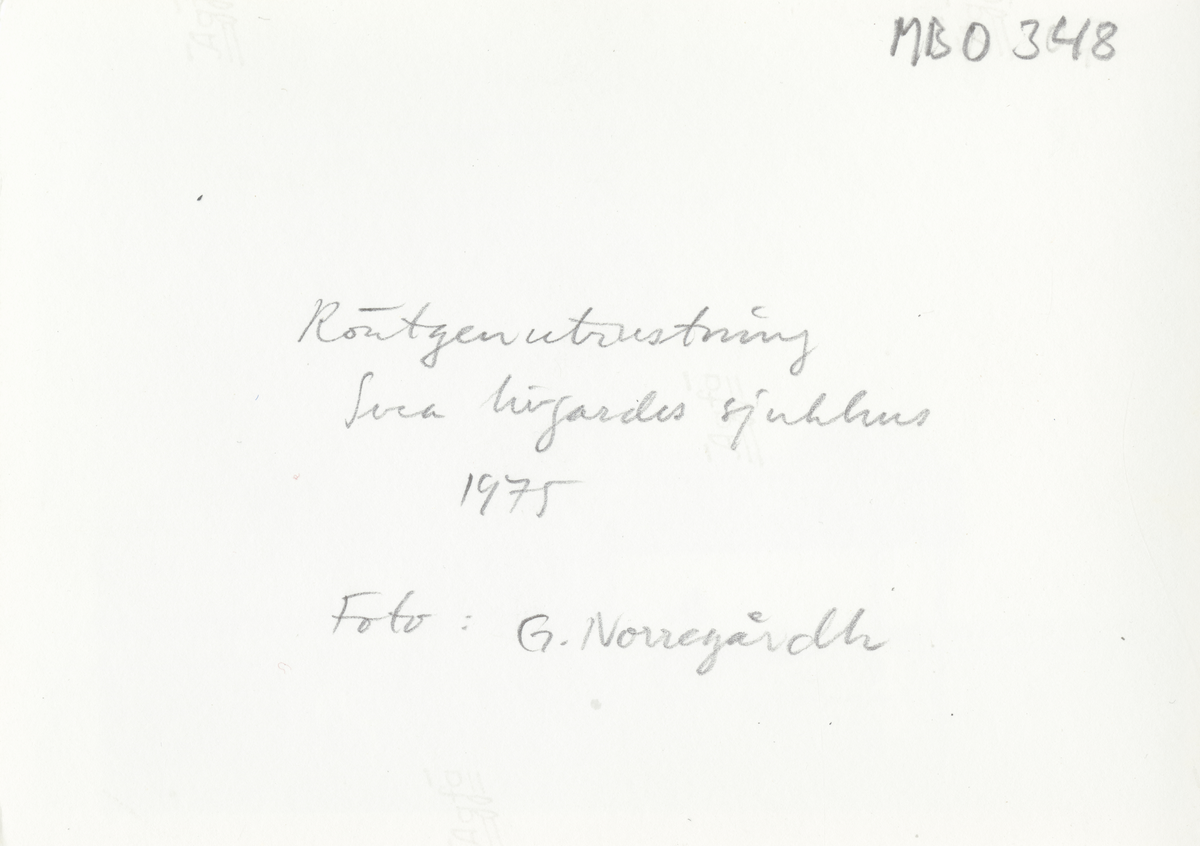 MBO 348
Röntgenutrustning
Svea livgardes sjukhus
1975
Foto : G. Norregårdh